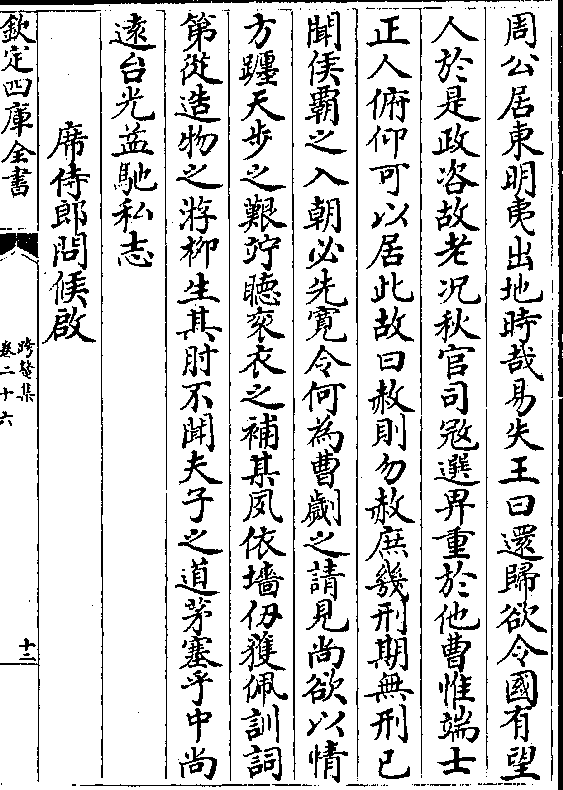 周公居東明夷出地時哉易失王曰還歸欲令國有望
人於是政咨故老况秋官司冦選畀重於他曹惟端士
正人俯仰可以居此故曰赦則勿赦庶幾刑期無刑已
聞侯霸之入朝必先寛令何為曹劌之請見尚欲以情
方躔天步之艱竚聴衮衣之補某夙依墻仞獲佩訓詞
第從造物之游柳生其肘不聞夫子之道茅塞乎中尚
逺台光益馳私志
席侍郎問候啟
欽定四庫全書
跨鼇集
卷二十六
十二